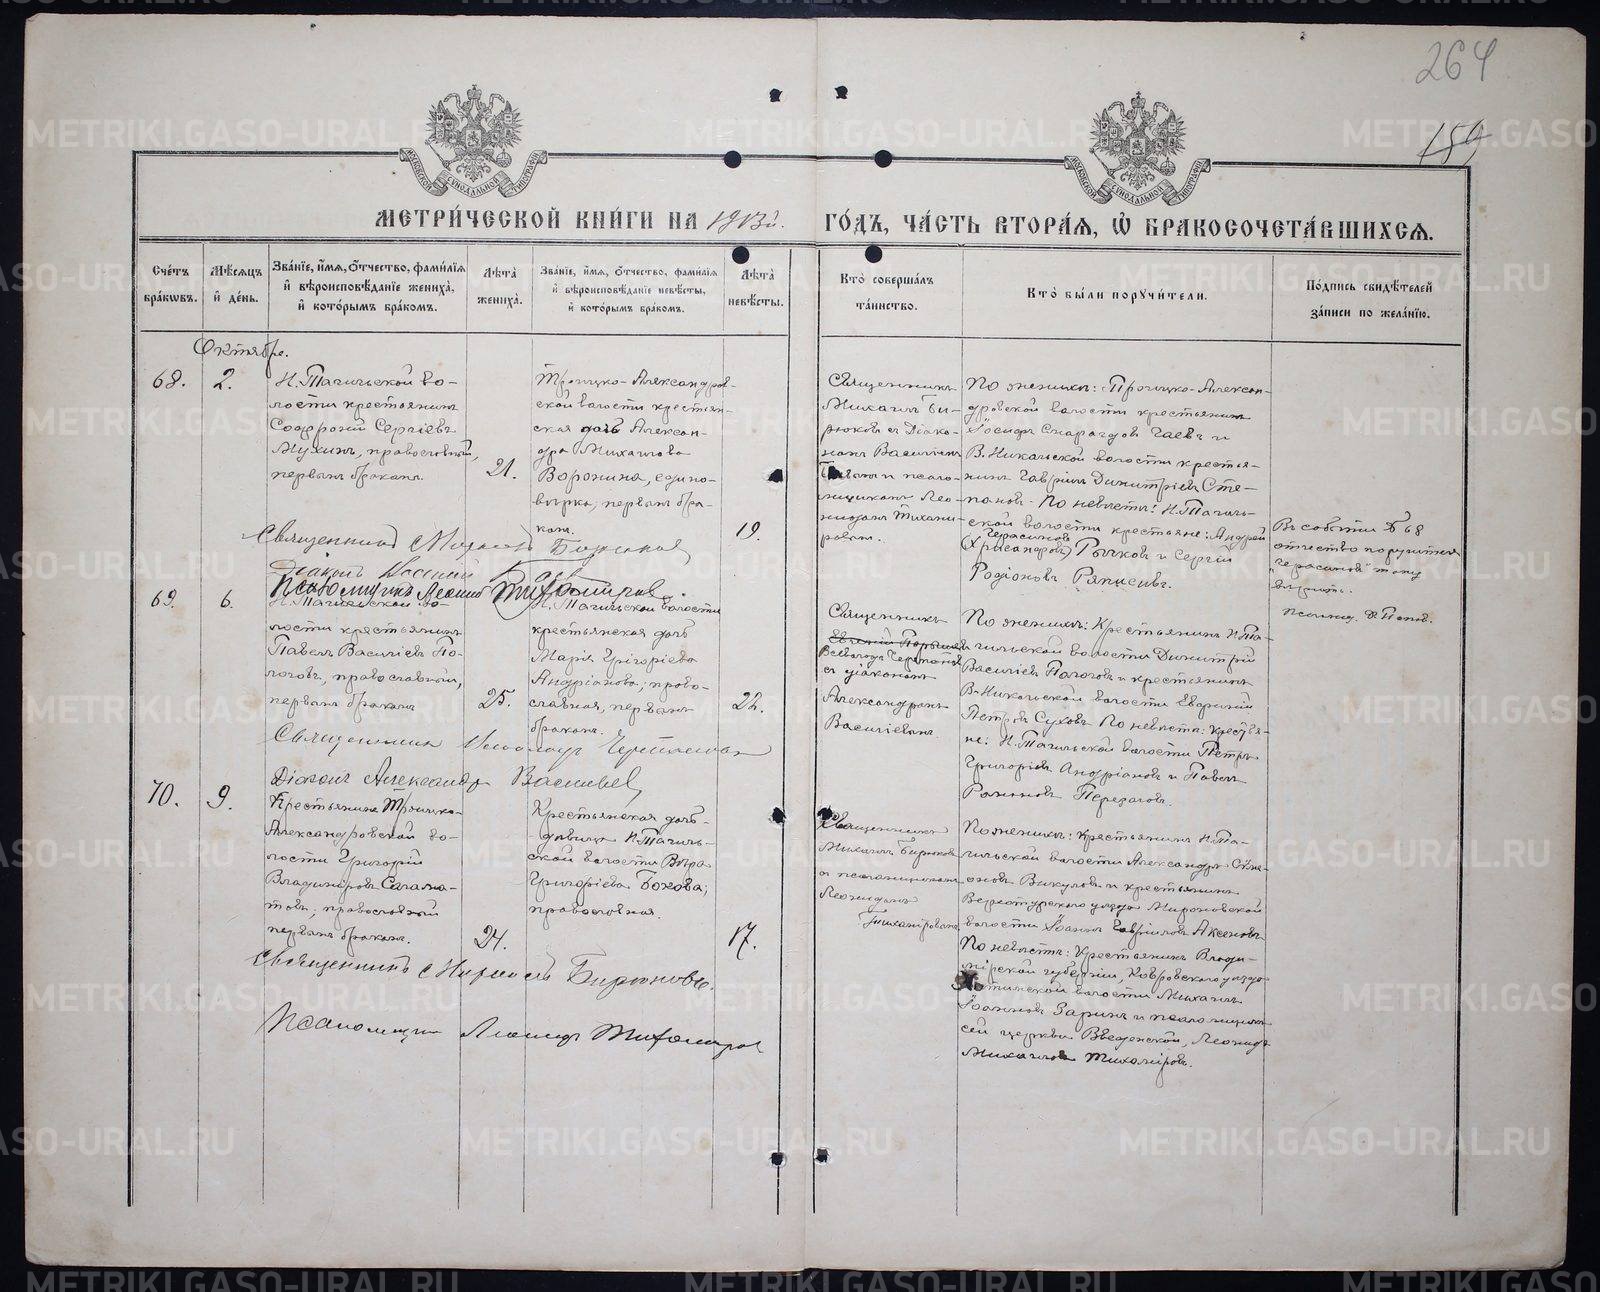 264
159
МОСКОВСКОЙ СУНОДАЛЬНОЙ ТИПОГРАФІИ
МОСКОВСКОЙ СУНОДАЛЬНОЙ ТИПОГРАФІИ
МЕТРИ́ЧЕСКОЙ КНИ́ГИ НА 1913й. ГО́ДЪ, ЧА́СТЬ ВТОРА́Я, Ѡ҆ БРАКОСОЧЕТА́ВШИХСЯ.
Сче́тъ бра́кѡвъ.
Мѣ́сяцъ й де́нь.
Зва́нїе, и́мя, о́тчество, фами́лїя й вѣроисповѣ́данїе жениха̀, й кото́рымъ бра́комъ.
Лѣ́та жениха̀.
Зва́нїе, и́мя, о́тчество, фами́лїя й вѣроисповѣ́данїе невѣ́сты, й кото́рымъ бра́комъ.
Лѣ́та невѣ́сты.
Кто̀ соверша́лъ та́инство.
Кто̀ бы́ли поручи́тели.
По́дпись свидѣ́телей за́писи по жела́нїю.
Октябрь.
68.
2.
Н.Тагильской во-
лости крестьянинъ
Софроній Сергіевъ
Мухинъ, православный,
первымъ бракомъ.
21.
Троицко-Александров-
ской волости крестьян-
ская дочь Алексан-
дра Михаилова
Воронина, едино-
вѣрка, первымъ бра-
комъ.
19.
Священникъ
Михаилъ Би-
рюковъ съ Діако-
номъ Василіемъ
и псалом-
щикомъ Лео-
нидомъ Тихоми-
ровым.
По женихѣ: Троицко-Алексан-
дровской волости крестьянинъ
Іосифъ Гаевъ и
В.Никольской волости крестья-
нинъ Гавріилъ Димитріевъ Сте-
пановъ. По невѣстѣ: Н.Тагиль-
ской волости крестьяне: Андрей
Герасимовъ
(Хрисанфовъ) Рычковъ и Сергій
Родіоновъ Ряписевъ.
Въ событіи № 68
отчество поручителя
"Герасимовъ" тому
вѣрить.
Псаломщ. Поповъ.
Священникъ Михаилъ Бирюковъ
Діаконъ Василий
Псаломщикъ Леонидъ Тихомировъ.
69.
6.
Н.Тагильской во-
лости крестьянинъ
Павелъ Василіевъ По-
логовъ, православный,
первымъ бракомъ
25.
Н.Тагильской волости
крестьянская дочь
Марія Григоріева
Андріанова; право-
славная, первымъ
бракомъ.
22.
Священникъ
Всеволодъ
съ діакономъ
Александромъ
Васильевымъ.
По женихѣ: Крестьянинъ Н.Та-
гильской волости Димитрій
Василіевъ Пологовъ и крестьянинъ
В.Никольской волости
Петровъ Суховъ. По невѣстѣ: крестья-
не: Н.Тагильской волости Петръ
Григоріевъ Андріановъ и Павелъ
Священникъ Всеволодъ
Діаконъ Александръ Васильевъ
70.
9.
Крестьянинъ Троицко-
Александровской во-
лости Григорій
Владиміровъ
православный
первымъ бракомъ.
24.
Крестьянская дочь-
дѣвица Н.Тагиль-
ской волости Вѣра
Григоріева Бокова;
православная.
17.
Священникъ
Михаилъ Бирюковъ
и псаломщикомъ
Леонидомъ
Тихомировымъ
По женихѣ: крестьянинъ Н.Та-
гильской волости Александръ Симе-
оновъ Викуловъ и крестьянинъ
Верхотурскаго уѣзда Мироновской
волости Іоаннъ Гавріиловъ Аксеновъ.
По невѣстѣ: Крестьянинъ Влади-
мірской губерніи, Ковровскаго уѣзда
волости Михаилъ
Іоанновъ Заринъ и псаломщикъ
сей церкви Введенской, Леонидъ
Михаиловъ Тихоміровъ.
Священникъ Михаилъ Бирюковъ.
Псаломщикъ Леонидъ Тихомировъ
METRIKI.GASO-URAL.RU